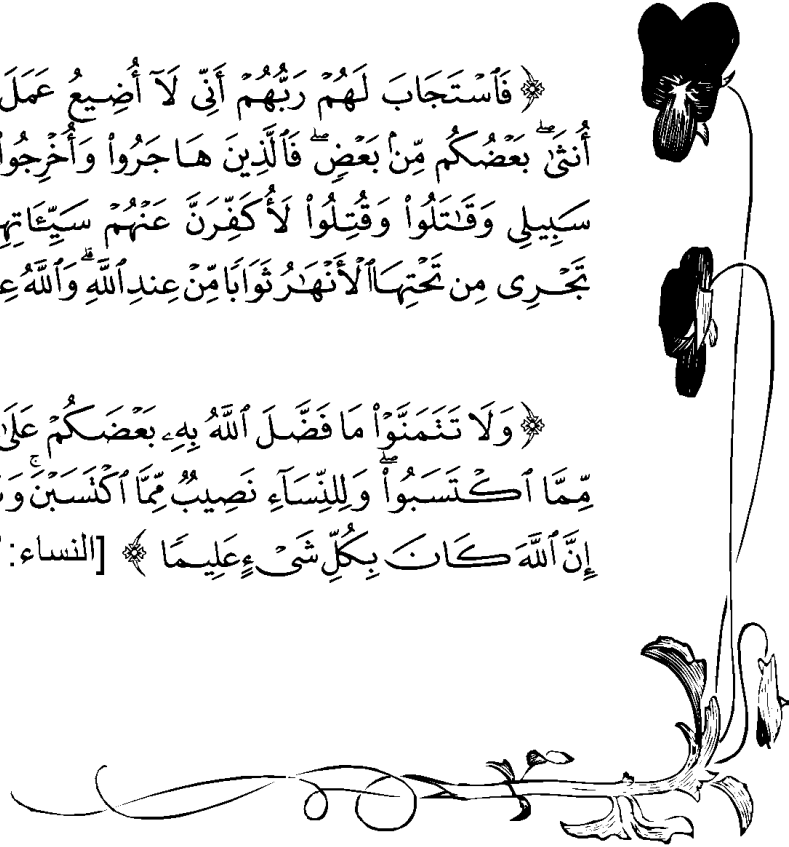 ﴿ فَٱسۡتَجَابَ لَهُمۡ رَبُّهُمۡ أَنِّي لَآ أُضِيعُ عَمَلَ
أُنثَىٰۖ بَعۡضُكُم مِّنۢ بَعۡضٖۖ فَٱلَّذِينَ هَاجَرُواْ وَأُخۡرِجُواْ
سَبِيلِي وَقَٰتَلُواْ وَقُتِلُواْ لَأُكَفِّرَنَّ عَنۡهُمۡ سَيِّـَٔاتِهِ
تَجۡرِي مِن تَحۡتِهَا ٱلۡأَنۡهَٰرُ ثَوَابٗا مِّنۡ عِندِ ٱللَّهِۚ وَٱللَّهُ عِ
﴿ وَلَا تَتَمَنَّوۡاْ مَا فَضَّلَ ٱللَّهُ بِهِۦ بَعۡضَكُمۡ عَلَىٰ
مِّمَّا ٱكۡتَسَبُواْۖ وَلِلنِّسَآءِ نَصِيبٞ مِّمَّا ٱكۡتَسَبۡنَۚ وَ
إِنَّ ٱللَّهَ كَانَ بِكُلِّ شَيۡءٍ عَلِيمٗا ﴾ [النساء: